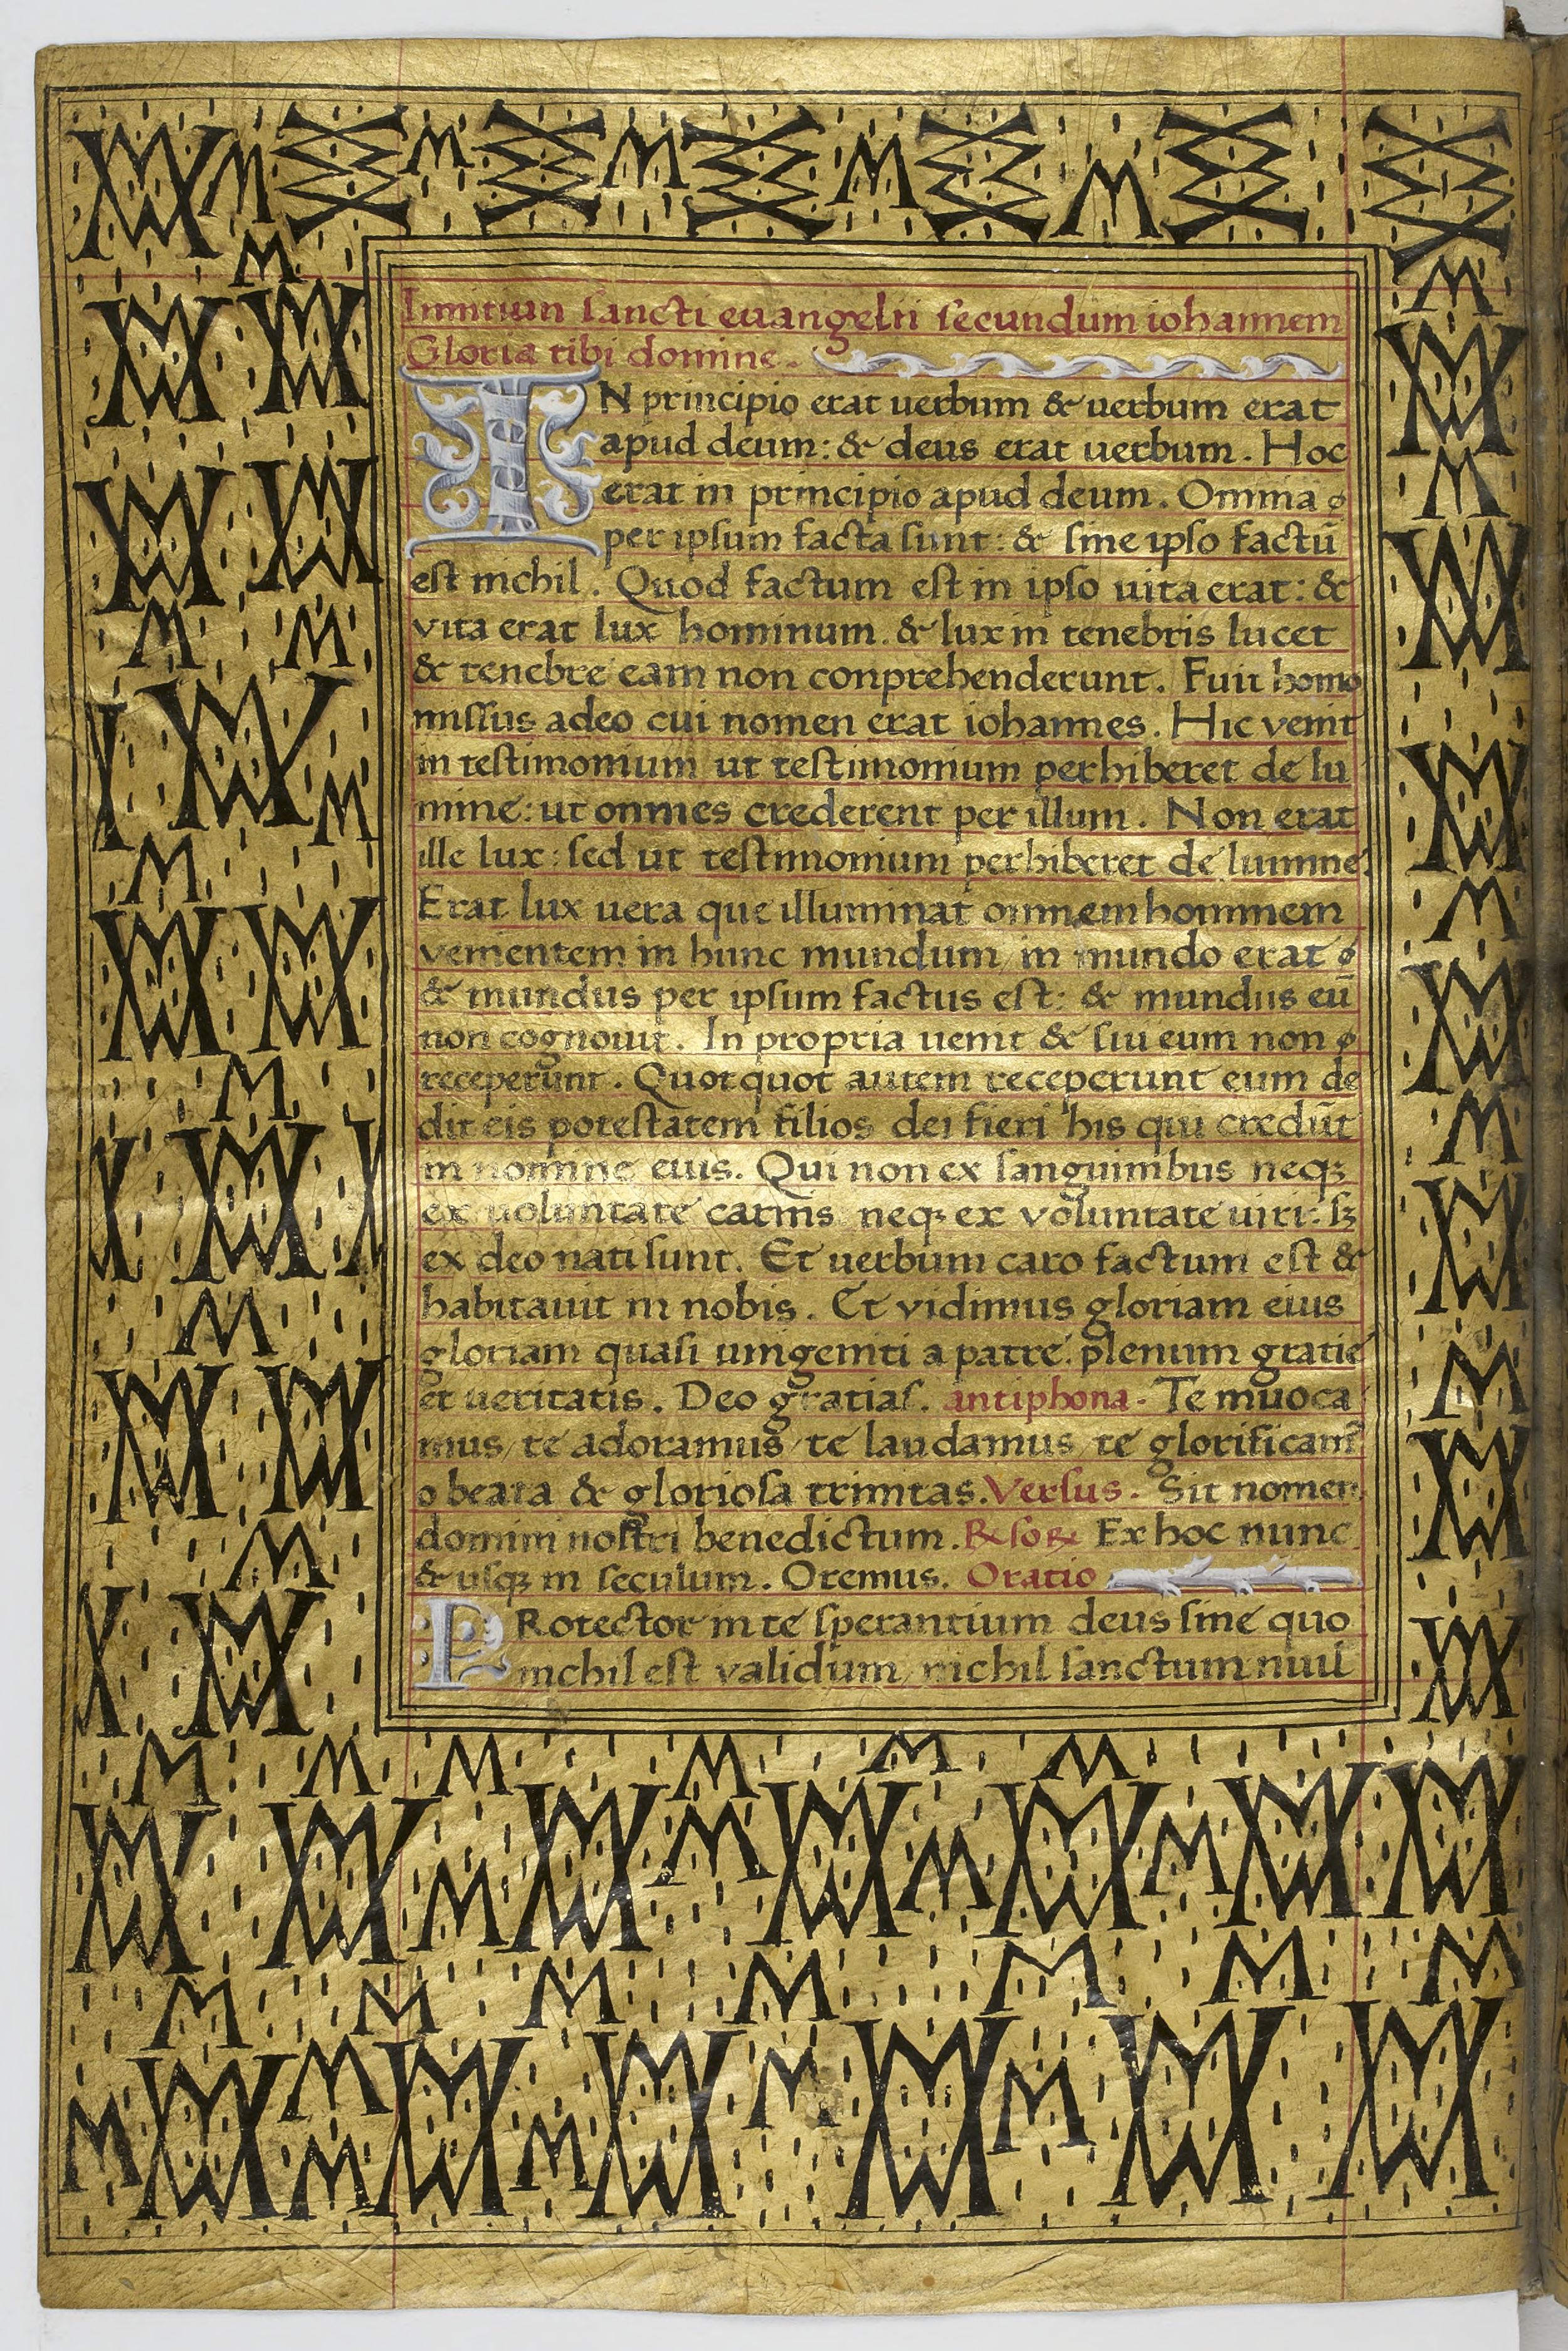 Innitiun sancti euangelii secundum iohannem
Gloria tibi domine.
IN principio erat uerbum & uerbum erat
apud deum: & deus erat uerbum. Hoc
erat in principio apud deum. Omnia
per ipsum facta sunt: & sine ipso factū
est nichil. Quod factum est in ipso uita erat: &
vita erat lux hominum. & lux in tenebris lucet
& tenebre eam non conprehenderunt. Fuit homo
missus adeo cui nomen erat iohannes. Hic venit
in testimonium ut testimonium perhiberet de lu
mine: ut onmes crederent per illum. Non erat
ille lux: sed ut testimonium perhiberet de lumine.
Erat lux uera que illuminat omnem hominem
venientem in hunc mundum/ in mundo erat
& mundus per ipsum factus est: & mundus eū
non cognouit. In propria uenit & sui eum non
receperunt. Quotquot autem receperunt eum de
dit eis potestatem filios dei fieri his qui credūt
in nomine eius. Qui non ex sanguinibus neqꝫ
ex uoluntate carnis neqꝫ ex voluntate uiri: sꝫ
ex deo nati sunt. Et uerbum caro factum est &
habitauit in nobis. Et vidimus gloriam eius
gloriam quasi unigeniti a patre. plenum gratie
et ueritatis. Deo gratias. antiphona. Te inuoca
mus/ te adoramus/ te laudamus/ te glorificam᾿
o beata & gloriosa trinitas. Versus. Sit nomen
domini nostri benedictum. Rx̄sorx̄ Ex hoc nunc
& usqꝫ in seculum. Oremus. Oratio
PRotector in te sperantium deus sine quo
nichil est validum/ nichil sanctum mul